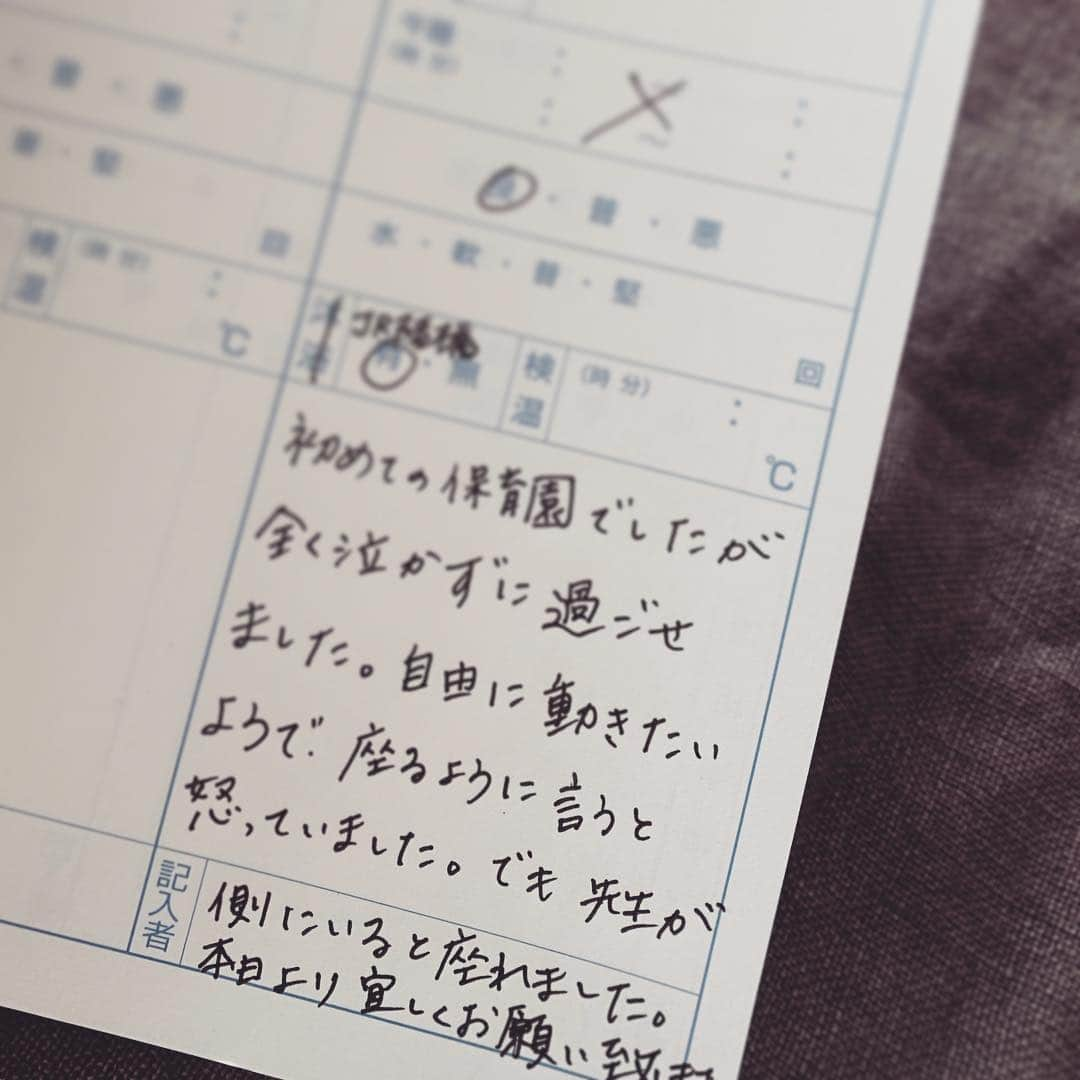 ・普・悪
普・堅
回
検温
(時 分)
:
℃
午睡
(時 分)
:
:
:
:
・普・悪
水・軟・普・堅
回
有・無
検温
(時 分)
:
℃
初めての保育園でしたが
全く泣かずに過ごせ
ました。自由に動きたい
ようで、座るように言うと
怒っていました。でも先生が
記入者
側にいると座れました。
本日より宜しくお願い致しま